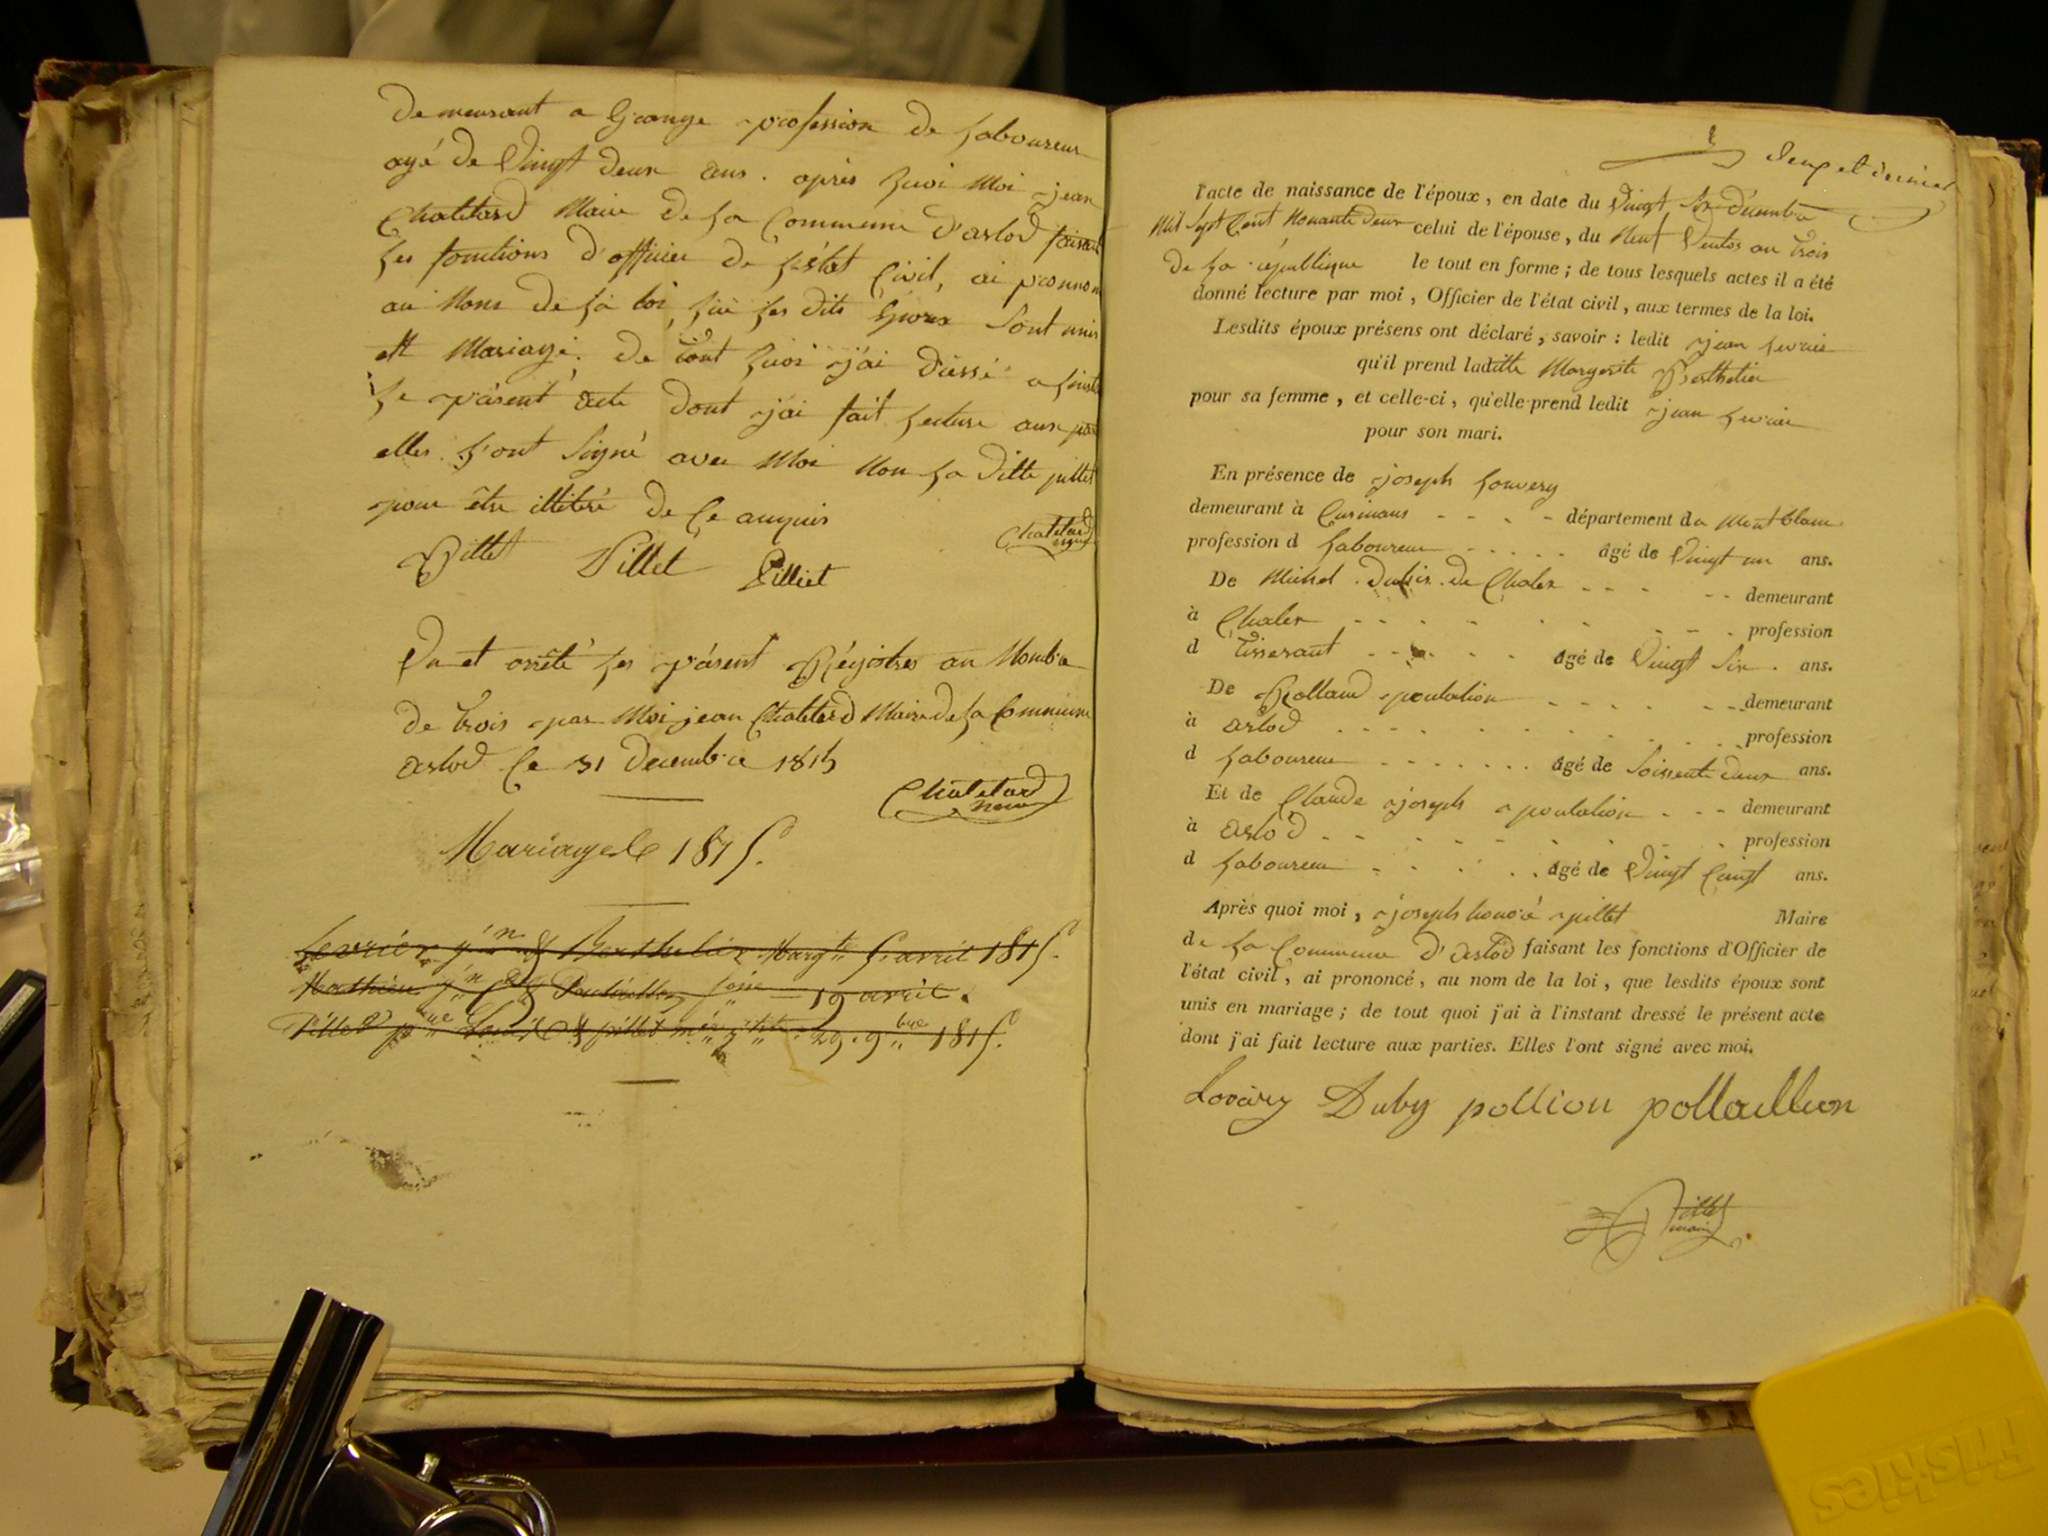 Demeurant a Grange profession de Laboureur
agé de Vingt deux ans. après quoi Moi jean
Chatelard Maire de la Commune d'arlod faisant
les fonctions d'officier de l'état Civil, ai prononc
au Nom de la loi que les dits Epoux Sont unis
en Mariage. de tout quoi j'ai dressé a l'inst
le présent acte dont j'ai fait lecture aux par
elles l'ont Signé avec Moi Non la ditte pillet
pour être illitéré de Ce enquis
Pillet Pillet Pilliet Chatelard
Vu et arrêté les présent Régistres au Nombre
de trois par Moi jean Chatelard Maire de la Commune
arlod Ce 31 Decembre 1815
Chatelard
Mariages de 1815.
Levrier j.n & Berthelier Marg.te 5. avril 1815.
Mathieu j.n & 19 avril.
Pillet & pillet 29. 9.bre 1815.
deux et dernier
l'acte de naissance de l'époux, en date du Vingt Six décembre
Mil Sept Cent Nonante deux celui de l'épouse, du Neuf Ventos an trois
de la république le tout en forme ; de tous lesquels actes il a été
donné lecture par moi, Officier de l'état civil, aux termes de la loi.
Lesdits époux présens ont déclaré, savoir : ledit jean Levrier
qu'il prend laditte Margerite Berthelier
pour sa femme, et celle-ci, qu'elle prend ledit jean Levrier
pour son mari.
En présence de joseph Louvery
demeurant à département du Mont blanc
profession d Laboureur âgé de Vingt un ans.
De Michel Dubi de Chalex demeurant
à Chalex profession
d Tisserant âgé de Vingt Six ans.
De Rolland poulalion demeurant
à arlod profession
d Laboureur âgé de Soissente deux ans.
Et de Claude joseph poulalion demeurant
à arlod profession
d Laboureur âgé de Vingt Cinq ans.
Après quoi moi, joseph honoré pillet Maire
de la Commune d'arlod faisant les fonctions d'Officier de
l'état civil, ai prononcé, au nom de la loi, que lesdits époux sont
unis en mariage ; de tout quoi j'ai à l'instant dressé le présent acte
dont j'ai fait lecture aux parties. Elles l'ont signé avec moi.
Lovary Duby pollion pollaillion
Pillet maire
Friskies